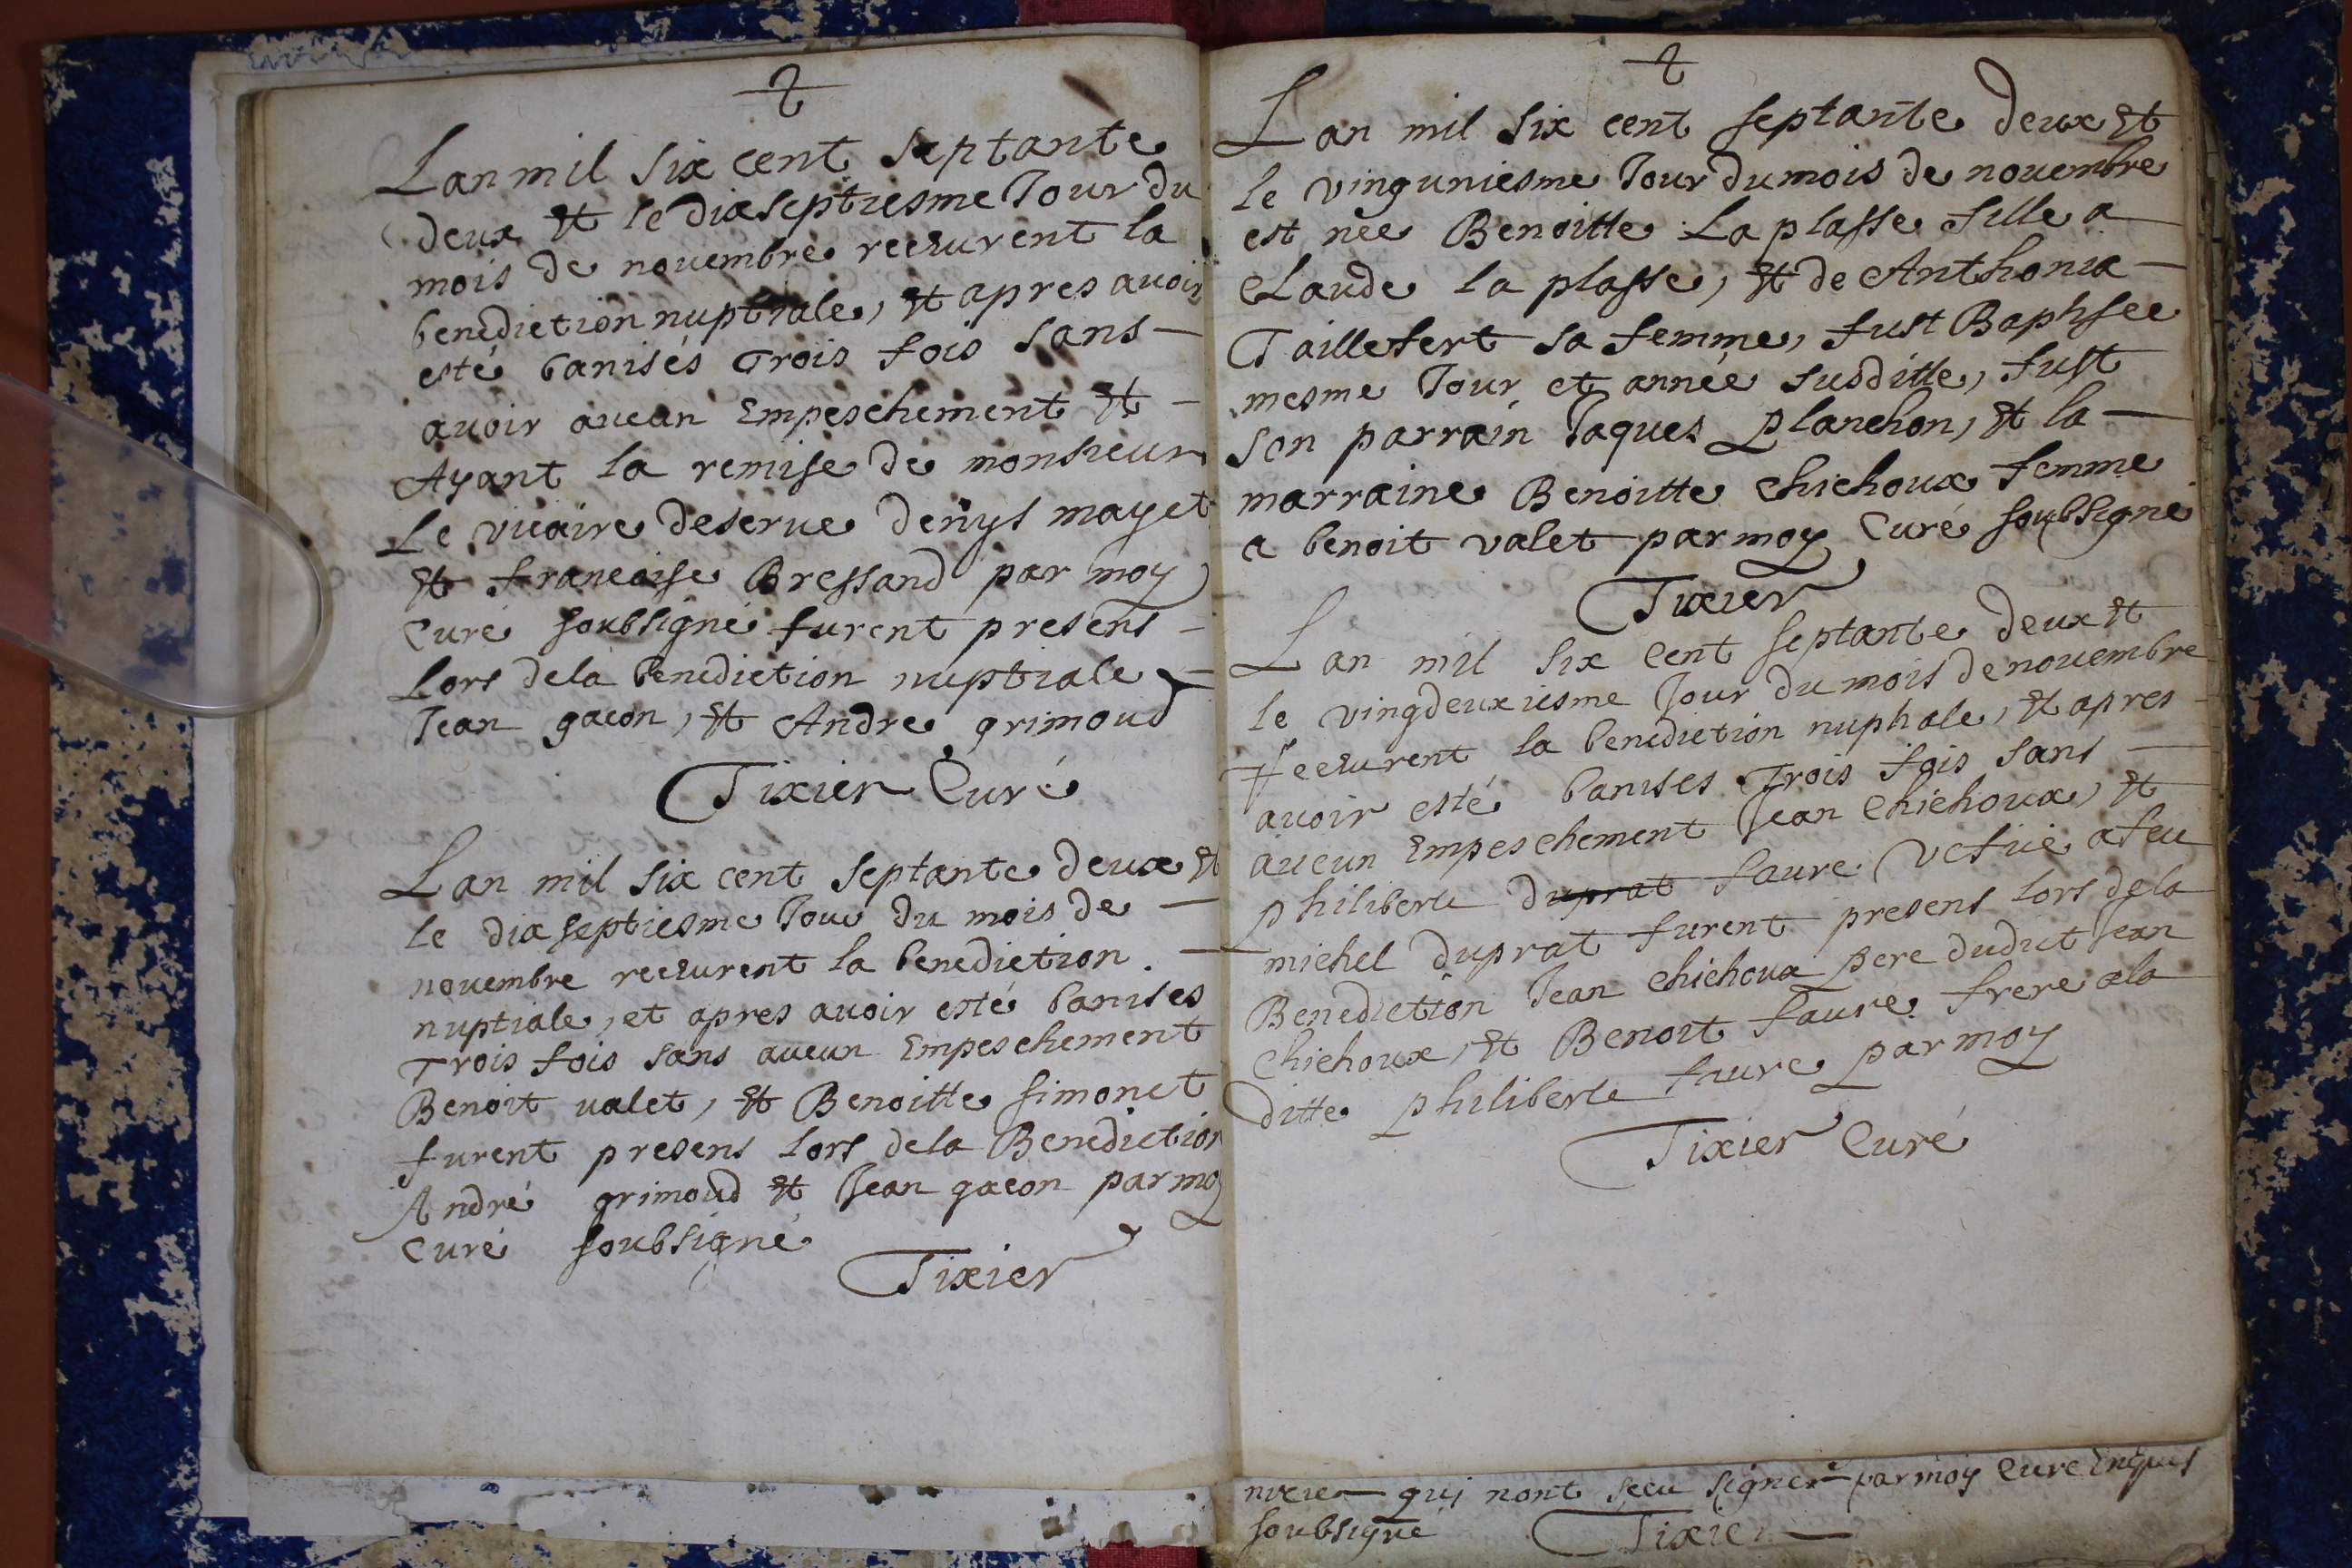 Lan mil six cent septante
deux et le dixseptiesme Jour du
mois de nouembre receurent la
benediction nuptiale, et apres auoir
esté banisés Trois fois sans
auoir aucun Empeschement et
Ayant la remise de monsieur
Le vicaire deserue denys mayet
et francoise Bressand par moy
Curé soubsigné furent presens
Lors dela benediction nuptiale
Jean gacon, et Andre grimoud
Tixier Curé
Lan mil six cent septante deux et
le dixseptiesme Jour du mois de
nouembre receurent la benediction
nuptiale, et apres auoir esté banises
Trois fois sans aucun Empeschement
Benoit valet, et Benoitte simonet
furent presens lors dela Benediction
André grimoud et Jean gacon par moy
Curé soubsigné
Tixier
Lan mil six cent septante deux et
le vinguniesme Jour du mois de nouembre
est née Benoitte La plasse fille a
Claude la plasse, et de Anthonia
Taillefert sa femme, fust Baptisee
mesme Jour et année susditte, fust
son parrain Jaques planchon, et la
marraine Benoitte Chichoux femme
a benoit valet par moy Curé soubsigné
Tixier
Lan mil six cent septante deux et
le vingdeuxiesme Jour du mois de nouembre
Receurent la benediction nuptiale, et apres
auoir esté banises Trois fois sans
aucun Empeschement Jean Chichoux, et
philiberte duprat faure vefue a feu
michel duprat furent presens lors dela
Benediction Jean Chichoux pere dudict Jean
Chichoux, et Benoit faure frere ala
ditte philiberte faure par moy
Tixier Curé
qui nont sceu signer par moy Cure
soubsigné Tixier